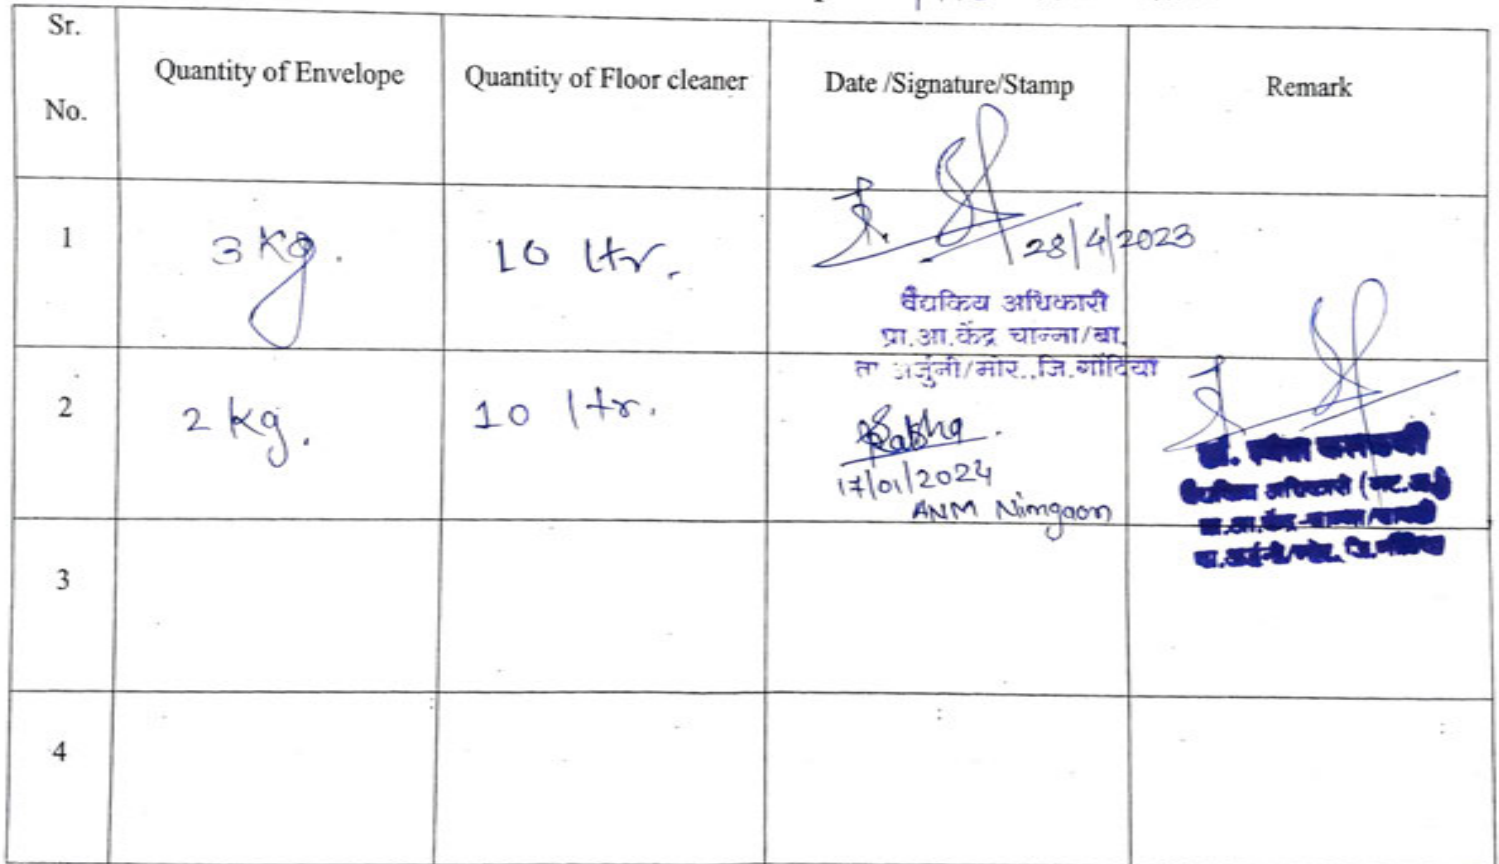 Sr.
No.
Quantity of Envelope
Quantity of Floor cleaner
Date /Signature/Stamp
Remark
1
3 kg.
10 ltr.
28/4/2023
वैद्यकिय अधिकारी
प्रा.आ.केंद्र चान्ना/बा.
ता अर्जुनी/मोर.,जि.गोंदिया
2
2 kg.
10 ltr.
17/01/2024
ANM Nimgaon
वैद्यकिय अधिकारी
3
4